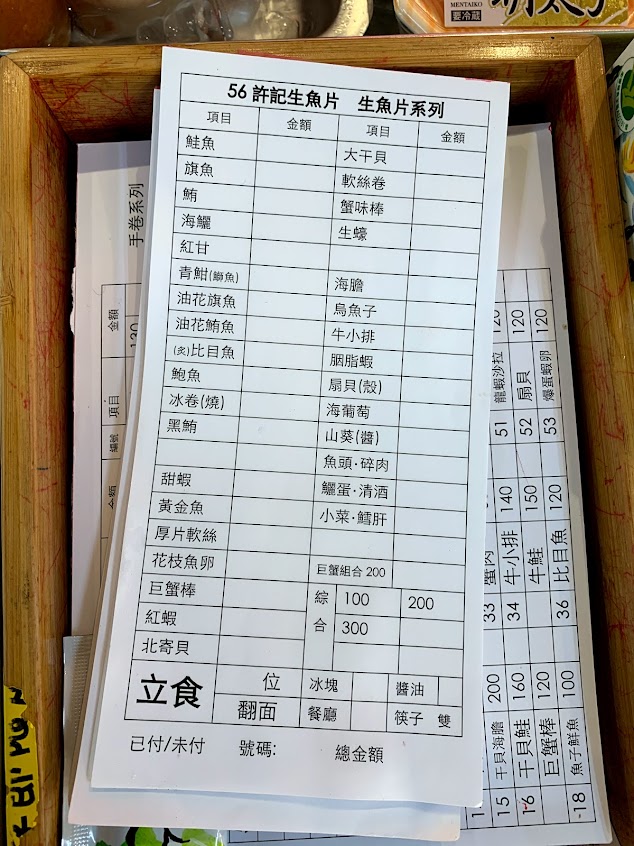 MENTAIKO
要冷蔵
56 許記生魚片 生魚片系列
項目 金額 項目 金額
鮭魚 大干貝
旗魚 軟絲卷
鮪 蟹味棒
海鱺 生蠔
紅甘
青魽(鰤魚) 海膽
油花旗魚 烏魚子
油花鮪魚 牛小排
(炙)比目魚 胭脂蝦
鮑魚 扇貝(殼)
冰卷(燒) 海葡萄
黑鮪 山葵(醬)
魚頭·碎肉
甜蝦 鱺蛋·清酒
黃金魚 小菜·鱈肝
厚片軟絲
花枝魚卵 巨蟹組合 200
巨蟹棒 綜合 100 200
紅蝦 300
北寄貝
立食 位 冰塊 醬油
翻面 餐廳 筷子 雙
已付/未付 號碼: 總金額
手卷系列
金額
130
項目
編號
金額
龍蝦沙拉 120
51
扇貝 120
52
爆蛋蝦卵 120
53
蟹肉 140
33
牛小排 150
34
牛鮭 120
比目魚
36
干貝海膽 200
15
干貝鮭 160
16
巨蟹棒 120
魚子鮮魚 100
18